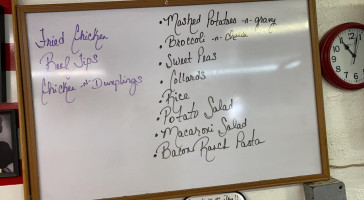 Fried Chicken
Beef Tips
Chicken -n- Dumplings
• Mashed Potatoes -n- gravy
• Broccoli -n- cheese
• Sweet Peas
• Collards
• Rice
• Potato Salad
• Macaroni Salad
• Bacon Ranch Pasta